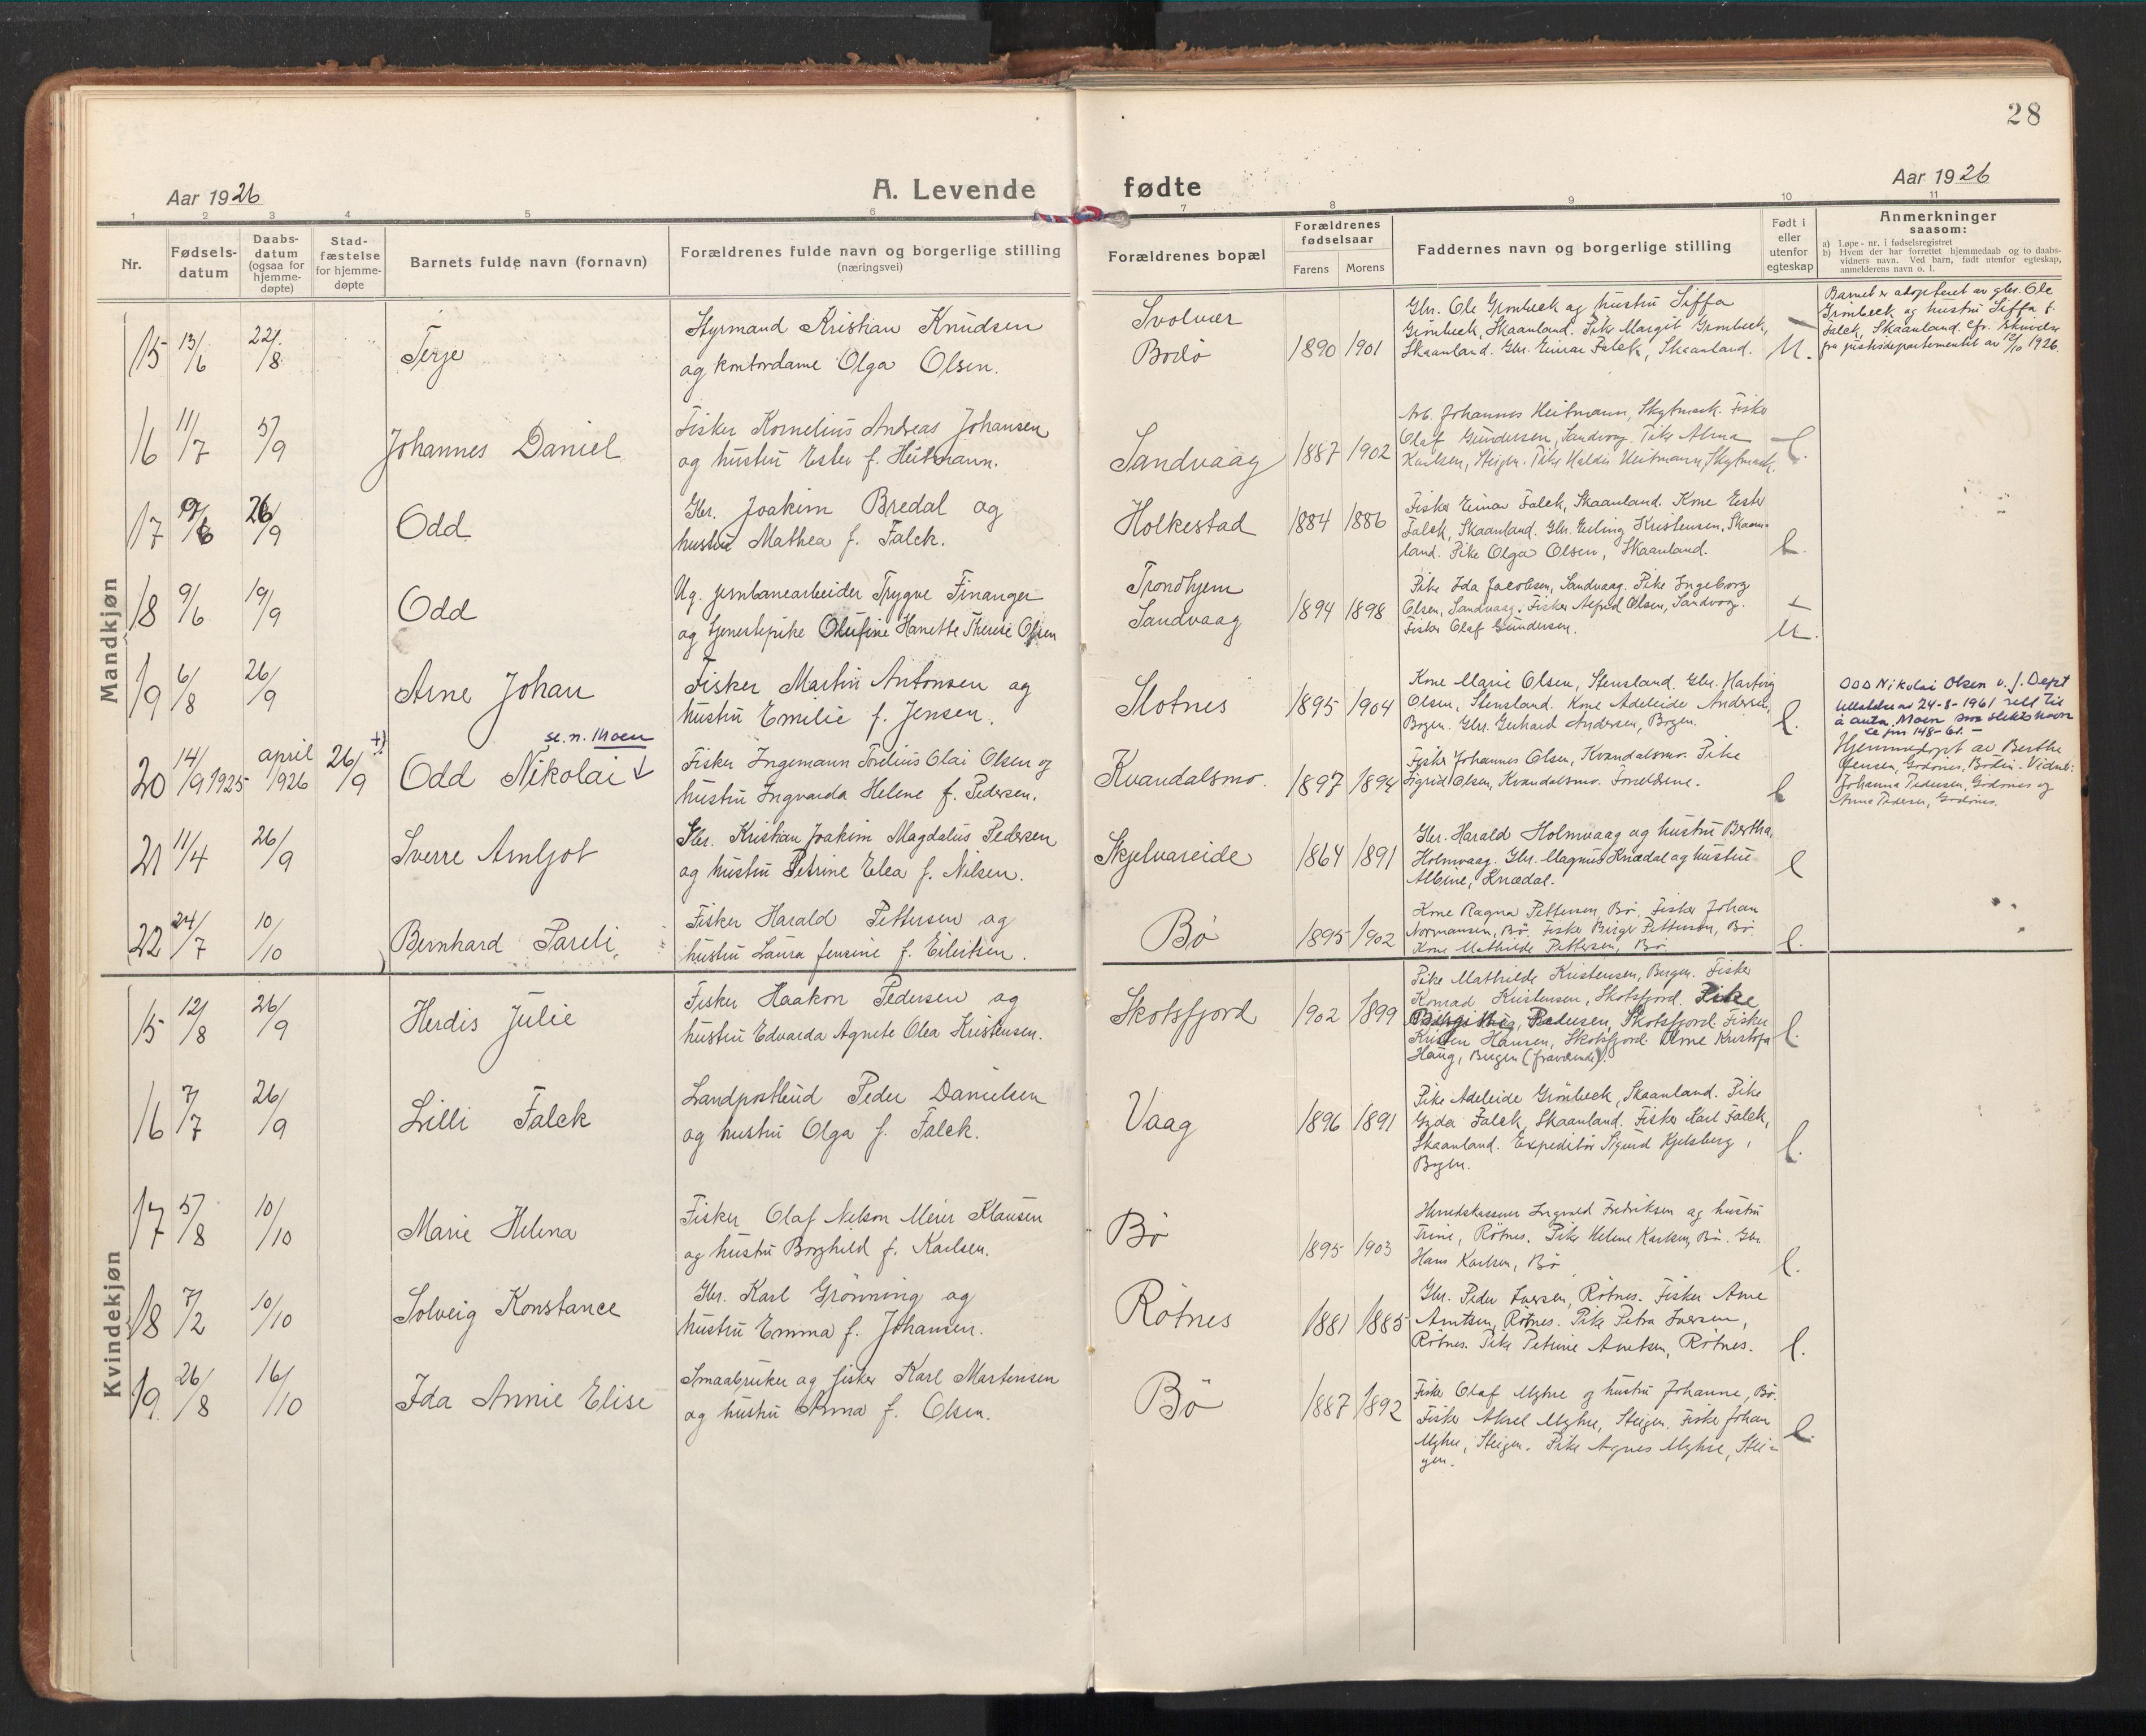 28
Aar 1926
A. Levende fødte
Aar 1926
1 2 3 4 5 6 7 8 9 10 11
Nr.
Fødsels-
datum
Daabs-
datum
(ogsaa for
hjemme-
døpte)
Stad-
fæstelse
for hjemme-
døpte
Barnets fulde navn (fornavn)
Forældrenes fulde navn og borgerlige stilling
(næringsvei)
Forældrenes bopæl
Forældrenes
fødselsaar
Farens Morens
Faddernes navn og borgerlige stilling
Født i
eller
utenfor
egteskap
Anmerkninger
saasom:
a) Løpe-nr. i fødselsregistret
b) Hvem der har forrettet hjemmedaab og to daabs-
vidners navn. Ved barn, født utenfor egteskap,
anmelderens navn o. l.
Mandkjøn
15 13/6 22/8
Terje
Styrmand Kristian Knudsen
og kontordame Olga Olsen.
Svolvær
Bodø
1890 1901
Gbr. Ole Grønbeck og hustru Siffa
Grønbeck, Skaanland. Pike Margit Grønbeck,
Skaanland. Gbr. Einar Falck, Skaanland.
U.
Barnet er adopteret av gbr. Ole
Grønbeck og hustru Siffa f.
Falck, Skaanland. Cfr. skrivelse
fra justisdepartementet av 12/10 1926.
16 11/7 5/9
Johannes Daniel
Fisker Kornelius Andreas Johansen
og hustru Ester f. Heitmann.
Sandvaag
1887 1902
Arb. Johannes Heitmann, Skytmark. Fisker
Olaf Gundersen, Sandvaag. Pike Alma
Karlsen, Steigen. Pike Haldis Heitmann, Skytmark.
l.
17 26/9
Odd
Gbr. Joakim Bredal og
hustru Mathea f. Falck.
Holkestad
1884 1886
Fisker Einar Falck, Skaanland. Kone Ester
Falck, Skaanland. Gbr. Erling Kristensen, Skaan-
land. Pike Olga Olsen, Skaanland.
l.
18 9/6 19/9
Odd
Ug. jernbanearbeider Trygve Finanger
og tjenestepike Olufine Hanette Therese Olsen
Trondhjem
Sandvaag
1894 1898
Pike Ida Jacobsen, Sandvaag. Pike Ingeborg
Olsen, Sandvaag. Fisker Alfred Olsen, Sandvaag.
Fisker Olaf Gundersen.
U.
19 6/8 26/9
Arne Johan
Fisker Martin Antonsen og
hustru Emelie f. Jensen.
Slotnes
1895 1904
Kone Marie Olsen, Stensland. Gbr. Hartvig
Olsen, Stensland. Kone Adeleide Andersen,
Bogen. Gbr. Gerhard Andersen, Bogen.
l.
20 14/9 1925 april 1926 26/9 +)
se. n. Moen
Odd Nikolai ↓
Fisker Ingemann Torelius Olai Olsen og
hustru Ingvarda Helene f. Pedersen.
Kvandalsmo.
1897 1894
Fisker Johannes Olsen, Kvandalsmo. Pike
Sigrid Olsen, Kvandalsmo. Forældrene.
l
Odd Nikolai Olsen v. J. Dept
tillatelse av 24-8-1961 rett til
å anta Moen som slektsnavn
se jnr 148-61. -
Hjemmedøpt av Berthe
Jensen, Godønes, Bodin. Vidne:
Johanna Pedersen, Godønes og
Anna Pedersen, Godønes.
21 11/4 26/9
Sverre Arnljot
Gbr. Kristian Joakim Magdalus Pedersen
og hustru Petrine Elea f. Nilsen.
Skjelvareide
1864 1891
Gbr. Harald Holmvaag og hustru Bertha,
Holmvaag. Gbr. Magnus Knædal og hustru
Albine, Knædal.
l
22 24/7 10/10
Bernhard Pareli
Fisker Harald Pettersen og
hustru Laura Jensine f. Eilertsen.
Bø
1895 1902
Kone Ragna Pettersen, Bø. Fisker Johan
Normansen, Bø. Fisker Birger Pettersen, Bø.
Kone Mathilde Pettersen, Bø.
l.
Kvindekjøn
15 12/8 26/9
Herdis Julie
Fisker Haakon Pedersen og
hustru Edvarda Agnete Olea Kristensen.
Skotsfjord
1902 1899
Pike Mathilde Kristensen, Bogen. Fisker
Konrad Kristensen, Skotsfjord. Pike
Pedersen, Skotsfjord. Fisker
Kristen Hansen, Skotsfjord. Kristofa
Haug, Bogen (fraværende).
l.
16 7/7 26/9
Lilli Falck
Landpostbud Peder Danielsen
og hustru Olga f. Falck.
Vaag
1896 1891
Pike Adeleide Grønbeck, Skaanland. Pike
Gyda Falck, Skaanland. Fisker Karl Falck,
Skaanland. Expeditør Sigurd Kjelsberg,
Bogen.
l.
17 5/8 10/10
Marie Helena
Fisker Olaf Nelson Meier Klausen
og hustru Borghild f. Karlsen.
Bø
1895 1903
Herredskasserer Ingvald Fredriksen og hustru
Trine, Røtnes. Pike Helene Karlsen, Bø. Gbr.
Hans Karlsen, Bø
l.
18 7/2 10/10
Solveig Konstance
Gbr. Karl Grønning og
hustru Emma f. Johansen.
Røtnes
1881 1885
Gbr. Peder Iversen, Røtnes. Fisker Arne
Arntsen, Røtnes. Pike Petra Iversen,
Røtnes. Pike Petrine Arntsen, Røtnes.
l.
19. 26/8 16/10
Ida Annie Elise
Smaabruker og fisker Karl Martinsen
og hustru Anna f. Olsen.
Bø
1887 1892
Fisker Olaf Myhre og hustru Johanne, Bø.
Fisker Aksel Myhre, Steigen. Fisker Johan
Myhre, Steigen. Pike Agnes Myhre, Stei-
gen.
l.